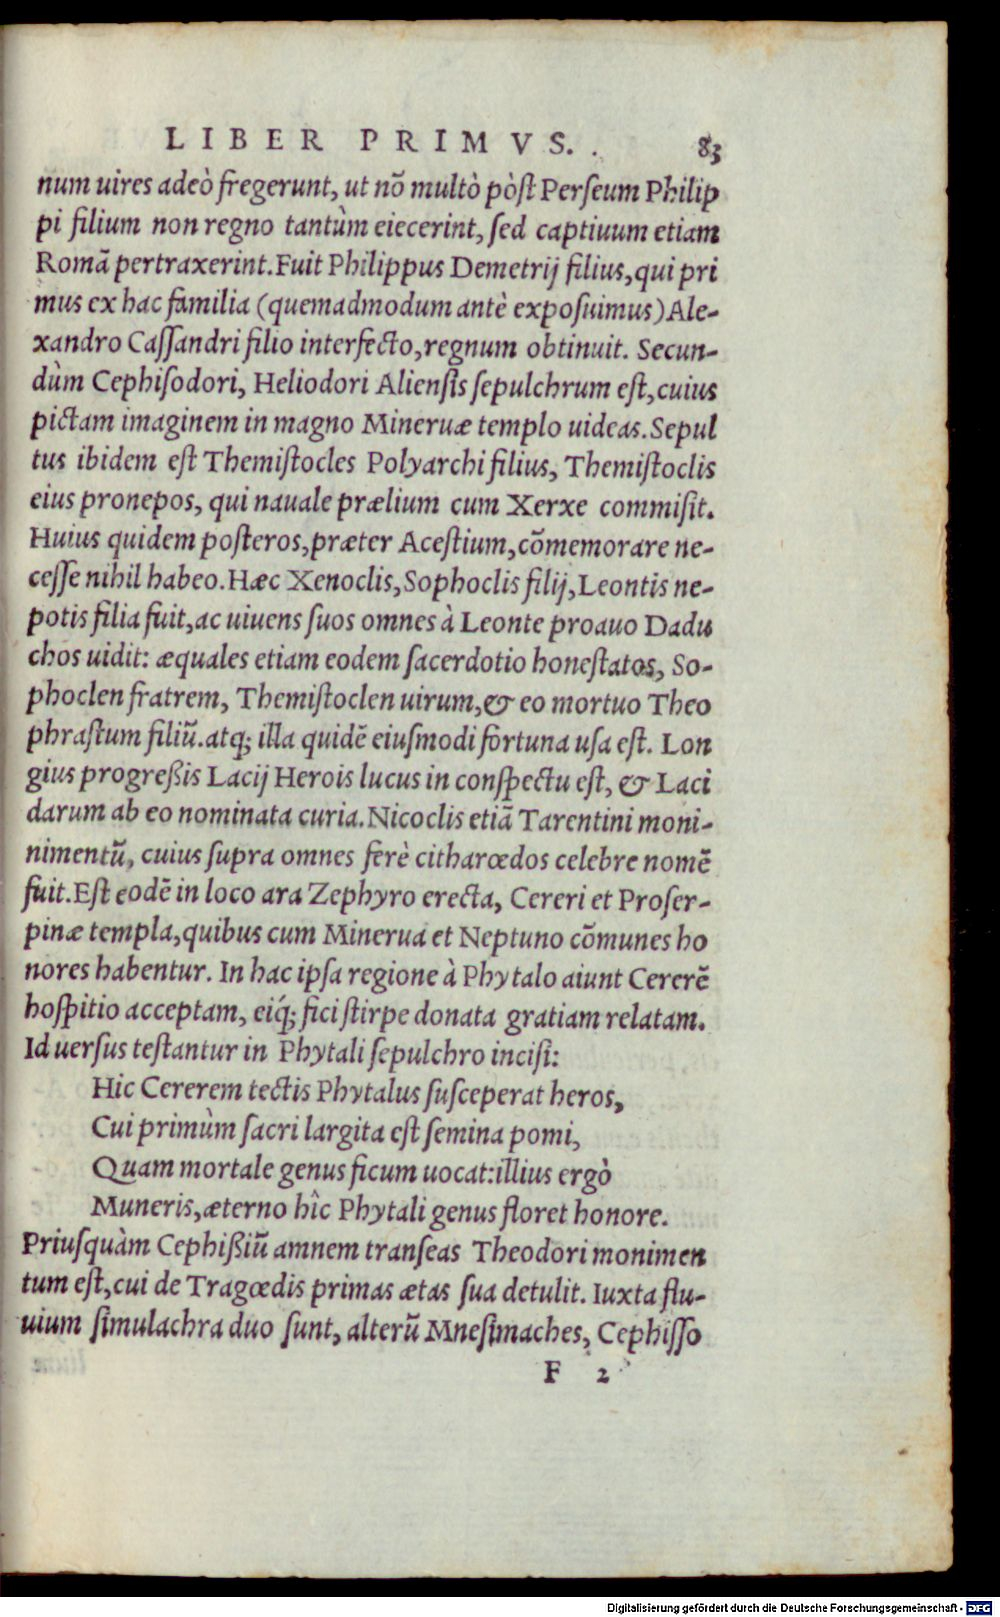 LIBER PRIMVS. 83
num uires adeò fregerunt, ut nõ multò pòst Perseum Philip
pi filium non regno tantùm eiecerint, sed captiuum etiam
Romã pertraxerint. Fuit Philippus Demetrij filius, qui pri
mus ex hac familia (quemadmodum antè exposuimus) Ale-
xandro Cassandri filio interfecto, regnum obtinuit. Secun-
dùm Cephisodori, Heliodori Aliensis sepulchrum est, cuius
pictam imaginem in magno Mineruæ templo uideas. Sepul
tus ibidem est Themistocles Polyarchi filius, Themistoclis
eius pronepos, qui nauale prælium cum Xerxe commisit.
Huius quidem posteros, præter Acestium, cõmemorare ne-
cesse nihil habeo. Hæc Xenoclis, Sophoclis filij, Leontis ne-
potis filia fuit, ac uiuens suos omnes à Leonte proauo Dadu
chos uidit: æquales etiam eodem sacerdotio honestatos, So-
phoclen fratrem, Themistoclen uirum, & eo mortuo Theo
phrastum filiũ. atq; illa quidẽ eiusmodi fortuna usa est. Lon
gius progreßis Lacij Herois lucus in conspectu est, & Laci
darum ab eo nominata curia. Nicoclis etiã Tarentini moni-
nimentũ, cuius supra omnes ferè citharœdos celebre nomẽ
fuit. Est eodẽ in loco ara Zephyro erecta, Cereri et Proser-
pinæ templa, quibus cum Minerua et Neptuno cõmunes ho
nores habentur. In hac ipsa regione à Phytalo aiunt Cererẽ
hospitio acceptam, eiq́; fici stirpe donata gratiam relatam.
Id uersus testantur in Phytali sepulchro incisi:
Hic Cererem tectis Phytalus susceperat heros,
Cui primùm sacri largita est semina pomi,
Quam mortale genus ficum uocat: illius ergò
Muneris, æterno hîc Phytali genus floret honore.
Priusquàm Cephißiũ amnem transeas Theodori monimen
tum est, cui de Tragœdis primas ætas sua detulit. Iuxta flu-
uium simulachra duo sunt, alterũ Mnesimaches, Cephisso
F 2
Digitalisierung gefördert durch die Deutsche Forschungsgemeinschaft - DFG